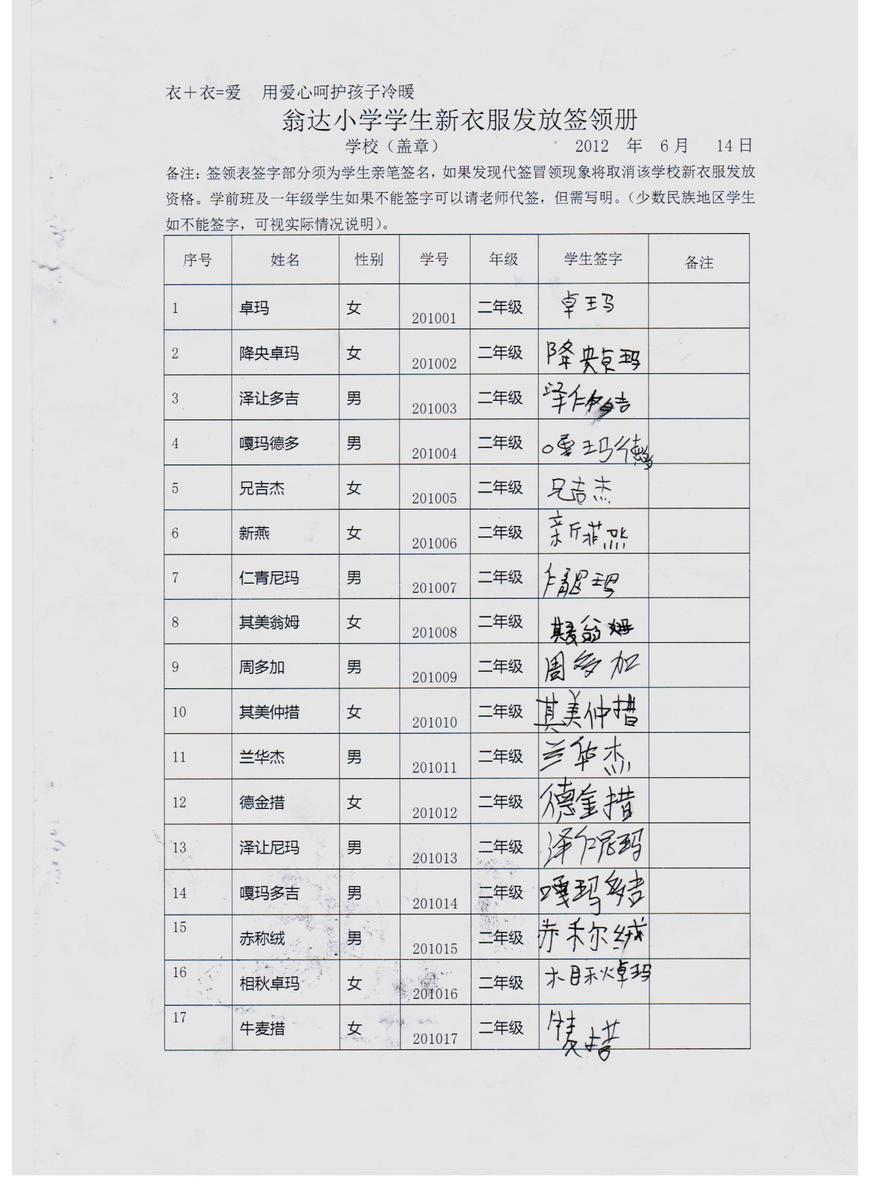 衣＋衣=爱 用爱心呵护孩子冷暖
翁达小学学生新衣服发放签领册
学校（盖章） 2012 年 6 月 14 日
备注：签领表签字部分须为学生亲笔签名，如果发现代签冒领现象将取消该学校新衣服发放
资格。学前班及一年级学生如果不能签字可以请老师代签，但需写明。（少数民族地区学生
如不能签字，可视实际情况说明）。
序号 姓名 性别 学号 年级 学生签字 备注
1 卓玛 女 201001 二年级 卓玛
2 降央卓玛 女 201002 二年级 降央卓玛
3 泽让多吉 男 201003 二年级 泽仁多吉
4 嘎玛德多 男 201004 二年级 嘎玛德多
5 兄吉杰 女 201005 二年级 兄吉杰
6 新燕 女 201006 二年级 新燕
7 仁青尼玛 男 201007 二年级 仁青尼玛
8 其美翁姆 女 201008 二年级 其美翁姆
9 周多加 男 201009 二年级 周多加
10 其美仲措 女 201010 二年级 其美仲措
11 兰华杰 男 201011 二年级 兰华杰
12 德金措 女 201012 二年级 德金措
13 泽让尼玛 男 201013 二年级 泽仁尼玛
14 嘎玛多吉 男 201014 二年级 嘎玛多吉
15 赤称绒 男 201015 二年级 赤称绒
16 相秋卓玛 女 201016 二年级 相秋卓玛
17 牛麦措 女 201017 二年级 牛麦措